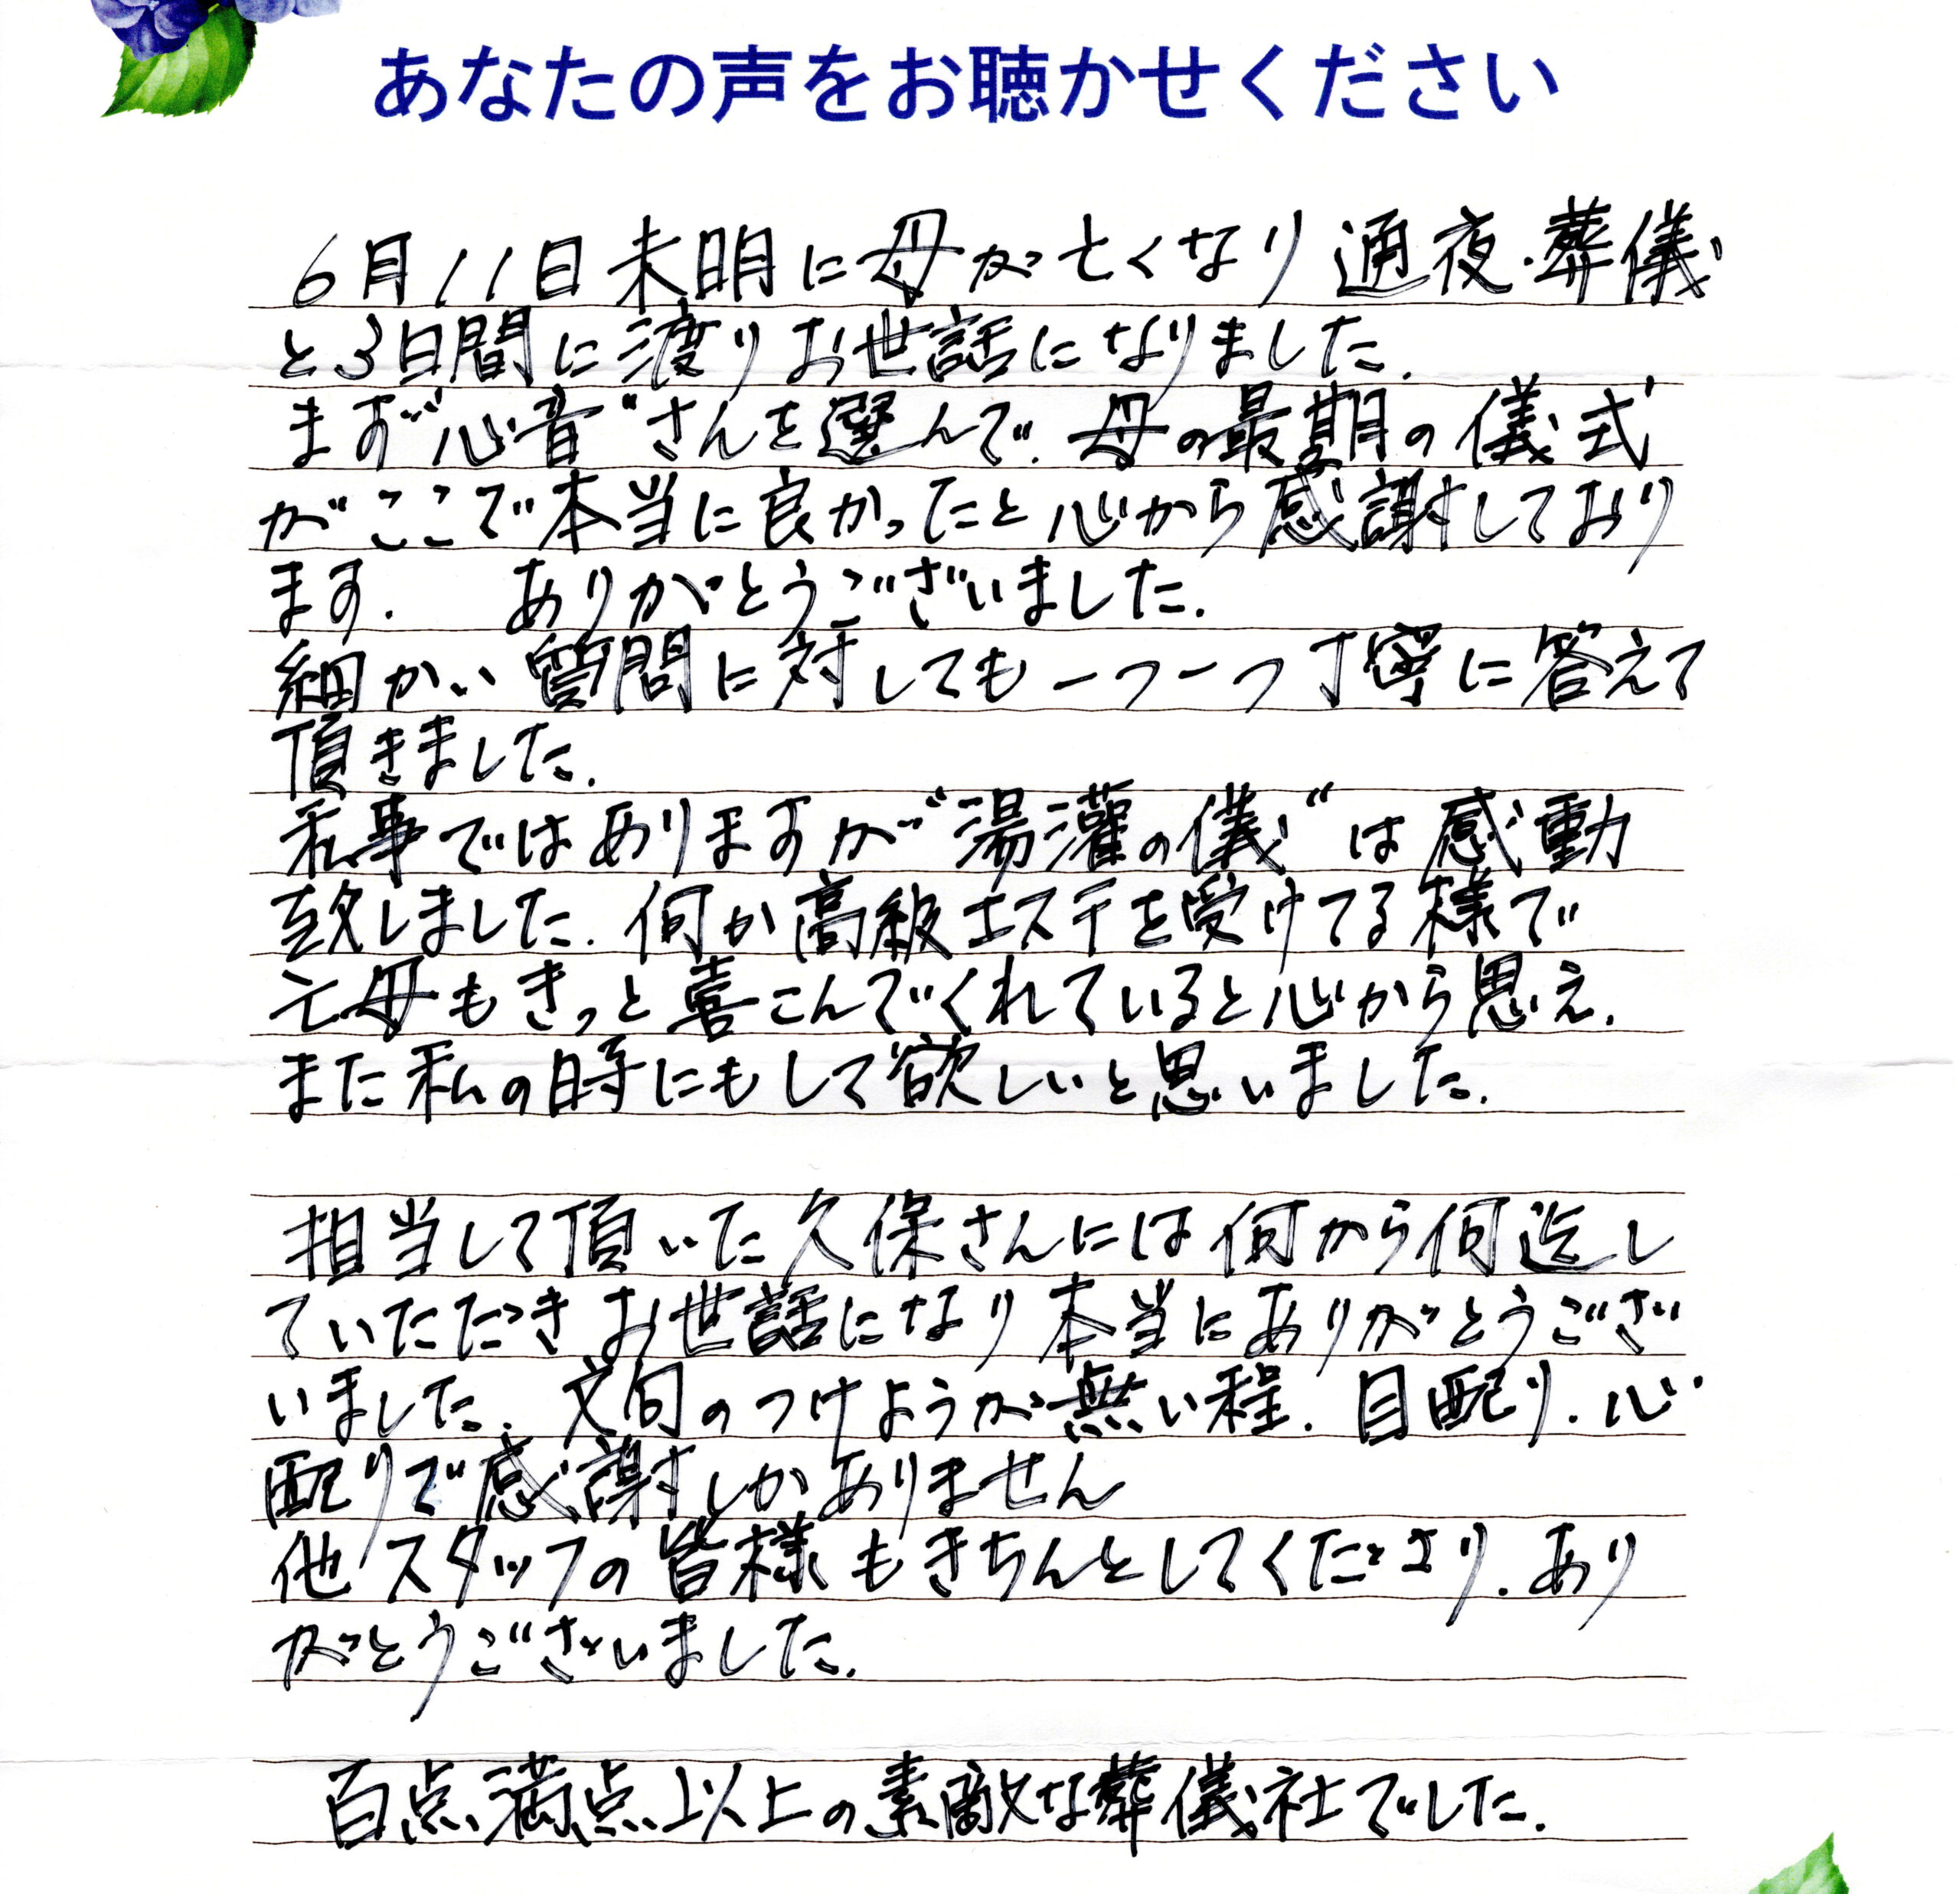 あなたの声をお聴かせください
6月11日未明に母が亡くなり通夜・葬儀
と3日間に渡りお世話になりました.
まず"心音"さんを選んで.母の最期の儀式
がここで本当に良かったと心から感謝しており
ます. ありがとうございました.
細かい質問に対しても一つ一つ丁寧に答えて
頂きました.
私事ではありますが"湯灌の儀"は感動
致しました.何か高級エステを受けてる様で
亡母もきっと喜こんでくれていると心から思え.
また私の時にもして欲しいと思いました.
担当して頂いた久保さんには何から何迄し
ていただきお世話になり本当にありがとうござ
いました.文句のつけようが無い程.目配り.心
配りで感謝しかありません
他スタッフの皆様もきちんとしてくださり.あり
がとうございました.
百点満点以上の素敵な葬儀社でした.